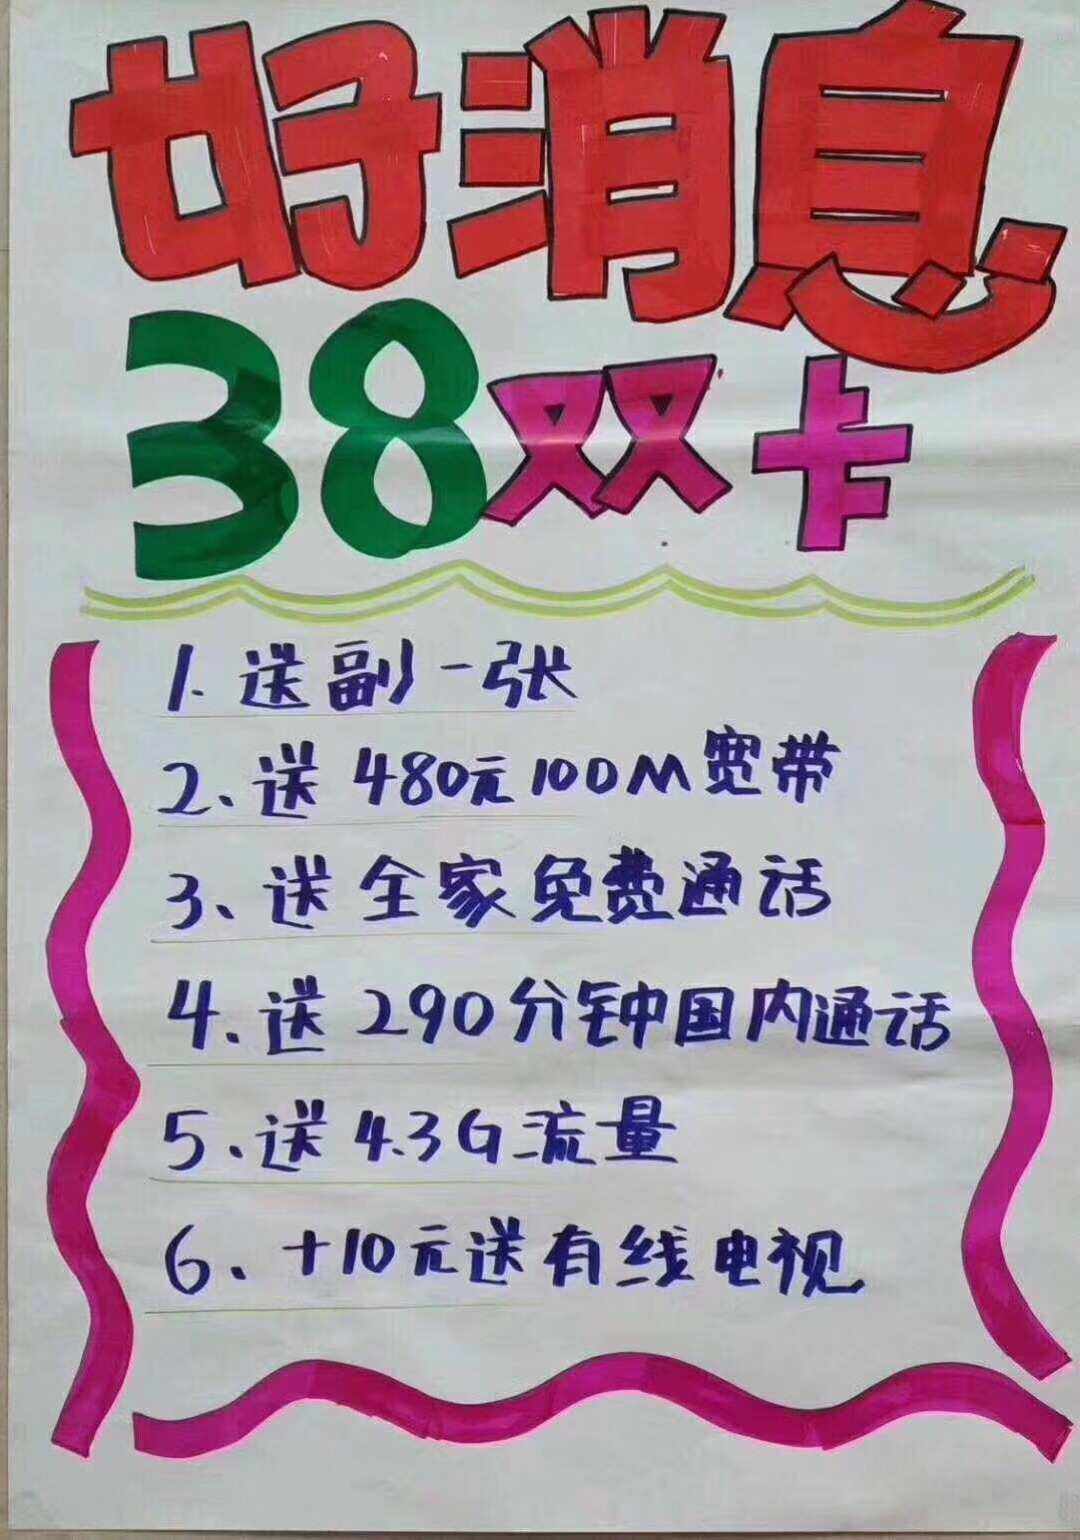 好消息
38双卡
1.送副一张
2、送480元100M宽带
3、送全家免费通话
4.送290分钟国内通话
5、送4.3G流量
6、+10元送有线电视